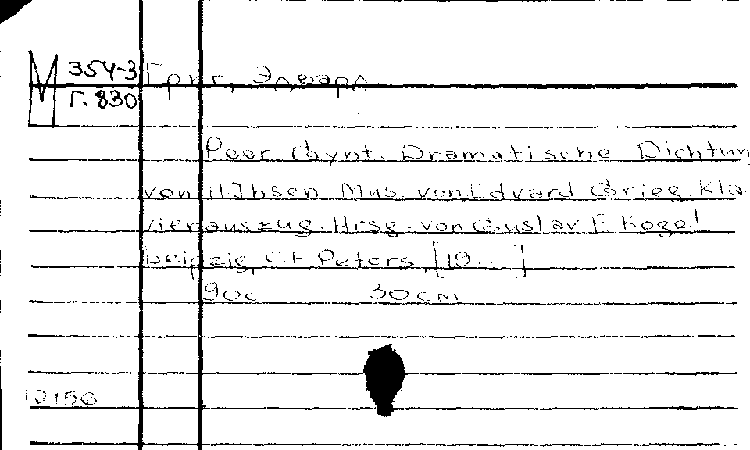 М 354-3
Г. 830
Григ, Эдвард
Peer Gynt. Dramatische Dichtung
von H Ibsen Mus. von Edvard Grieg. Kla-
vierauszug. Hrsg. von Gustav F. Kogel
Leipzig, C F Peters, [19...]
90c 30cm